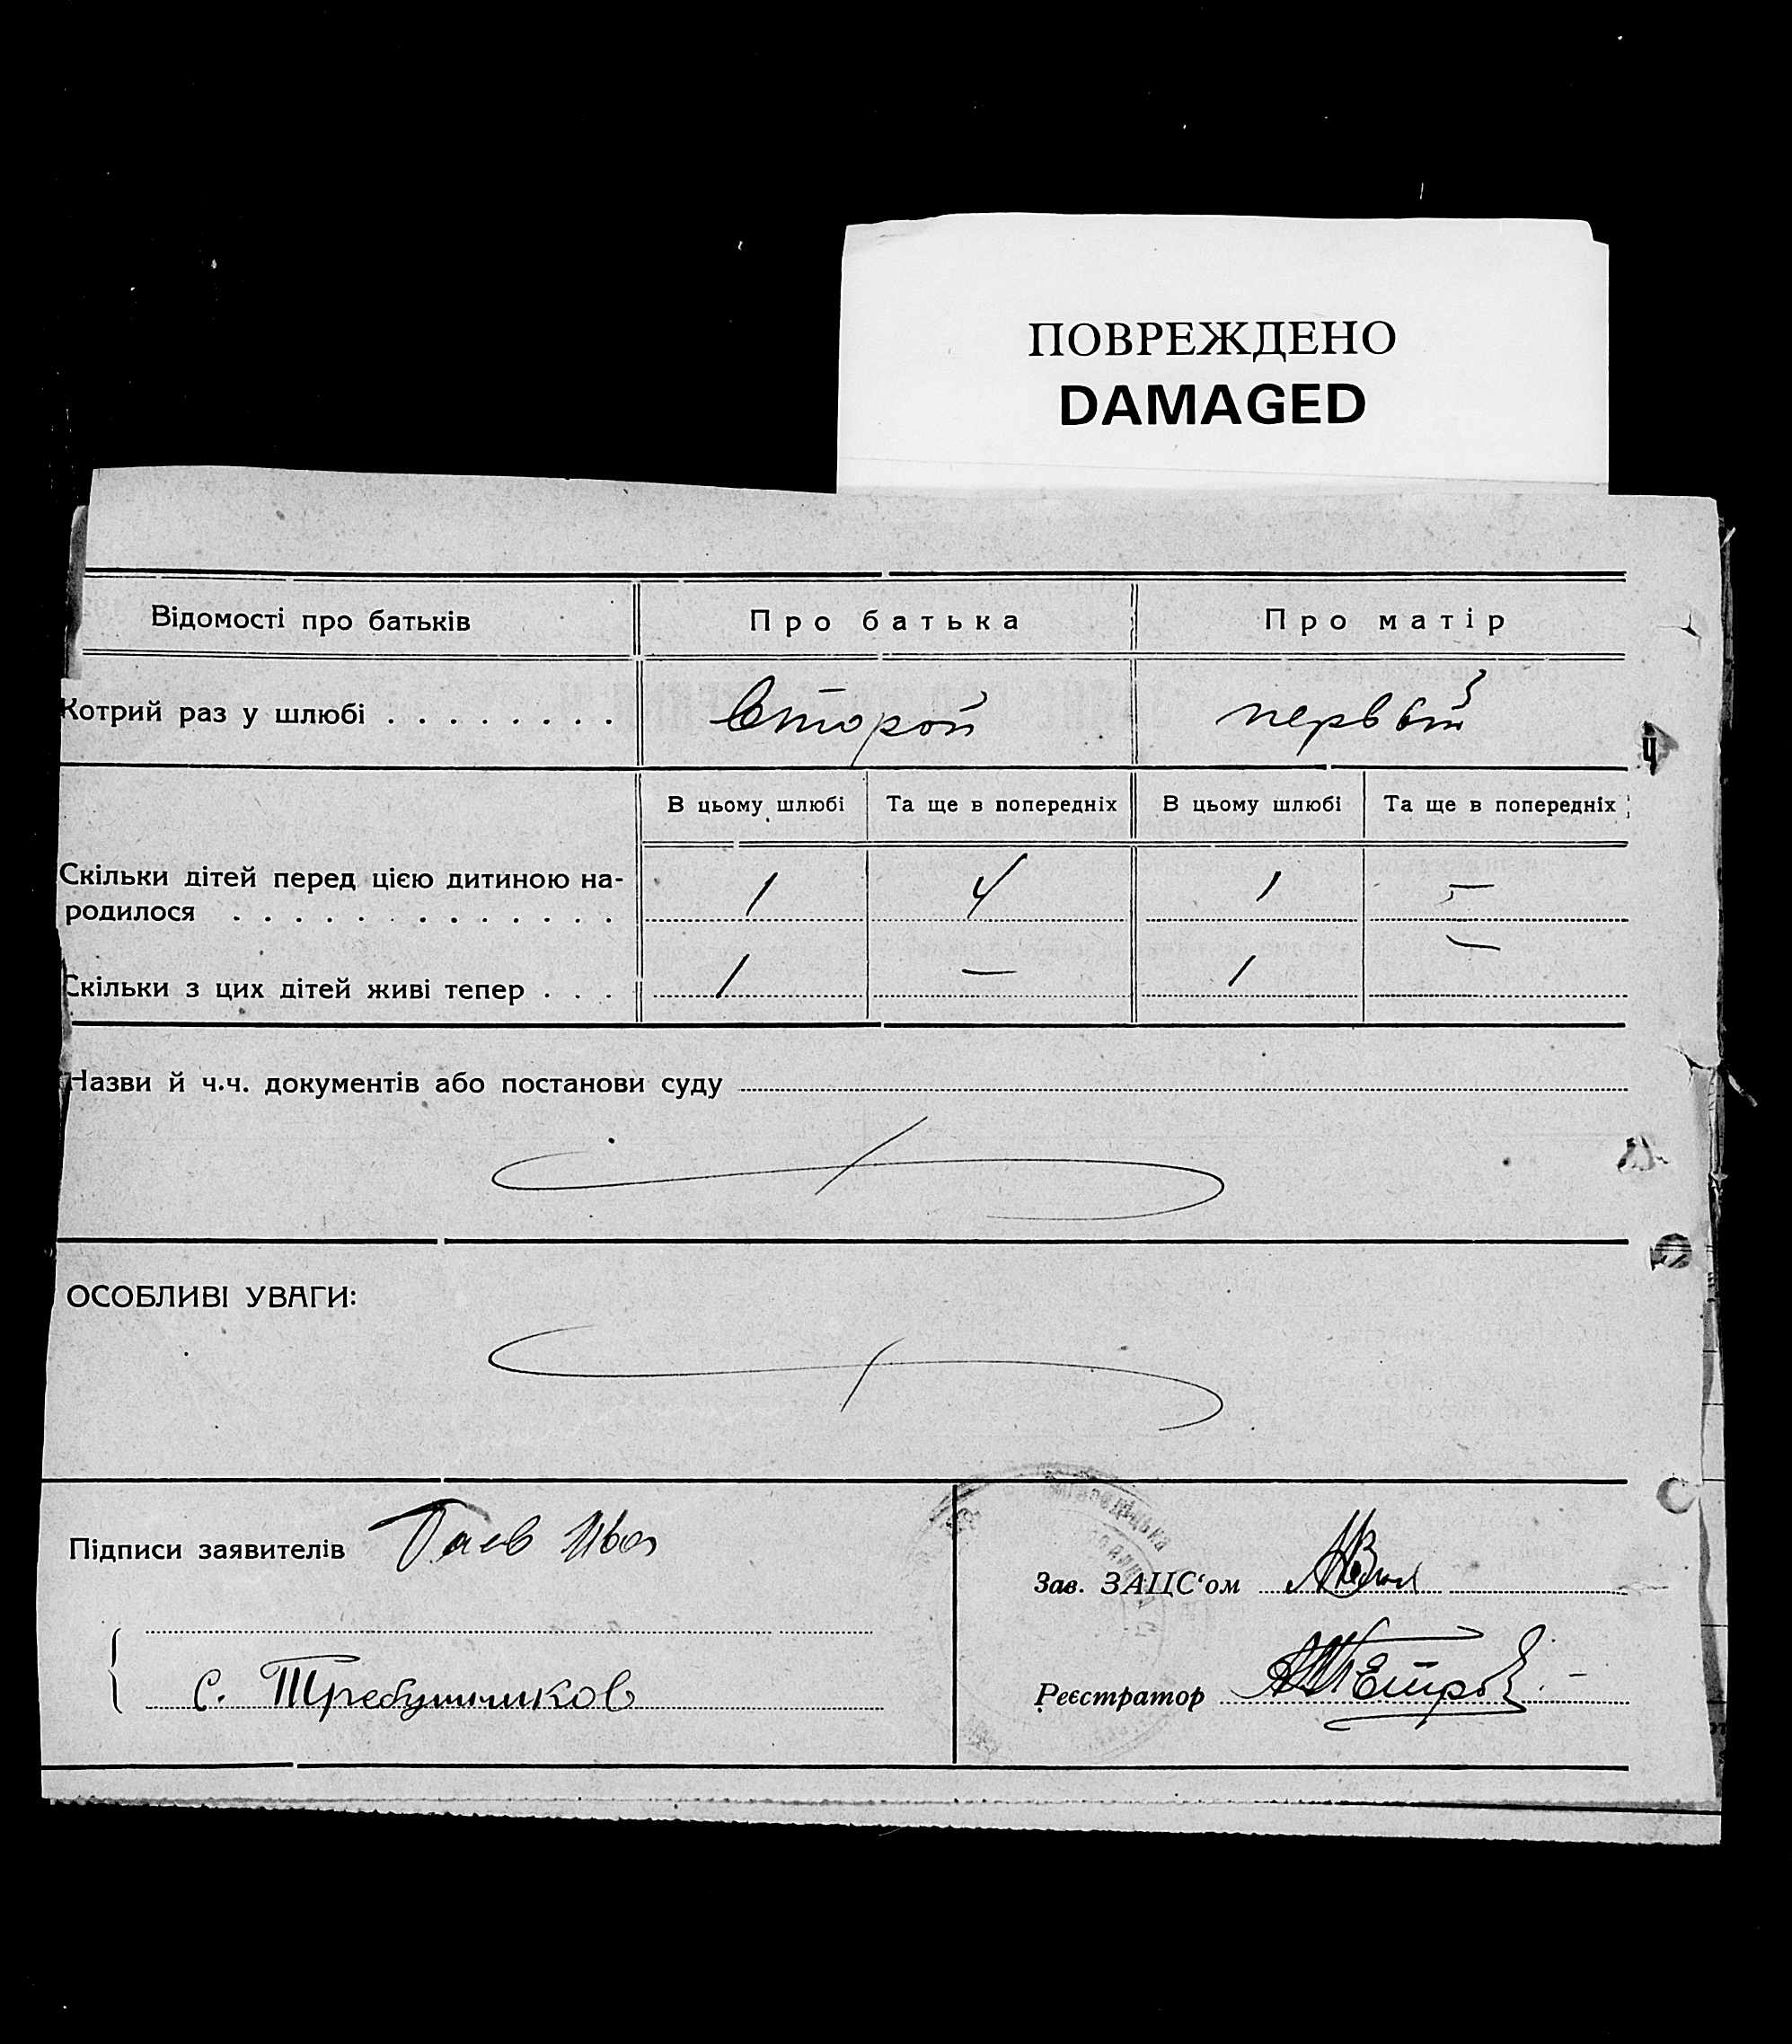 ПОВРЕЖДЕНО
DAMAGED
Відомості про батьків
Про батька
Про матір
Котрий раз у шлюбі . . . . . . . .
Второй
первый
В цьому шлюбі
Та ще в попередніх
В цьому шлюбі
Та ще в попередніх
Скільки дітей перед цією дитиною на-
родилося . . . . . . . . . . . . .
1
4
1
—
Скільки з цих дітей живі тепер . . .
1
—
1
—
Назви й ч.ч. документів або постанови суду
ОСОБЛИВІ УВАГИ:
Підписи заявителів
Зав. ЗАЦС‘ом
С.
Реєстратор